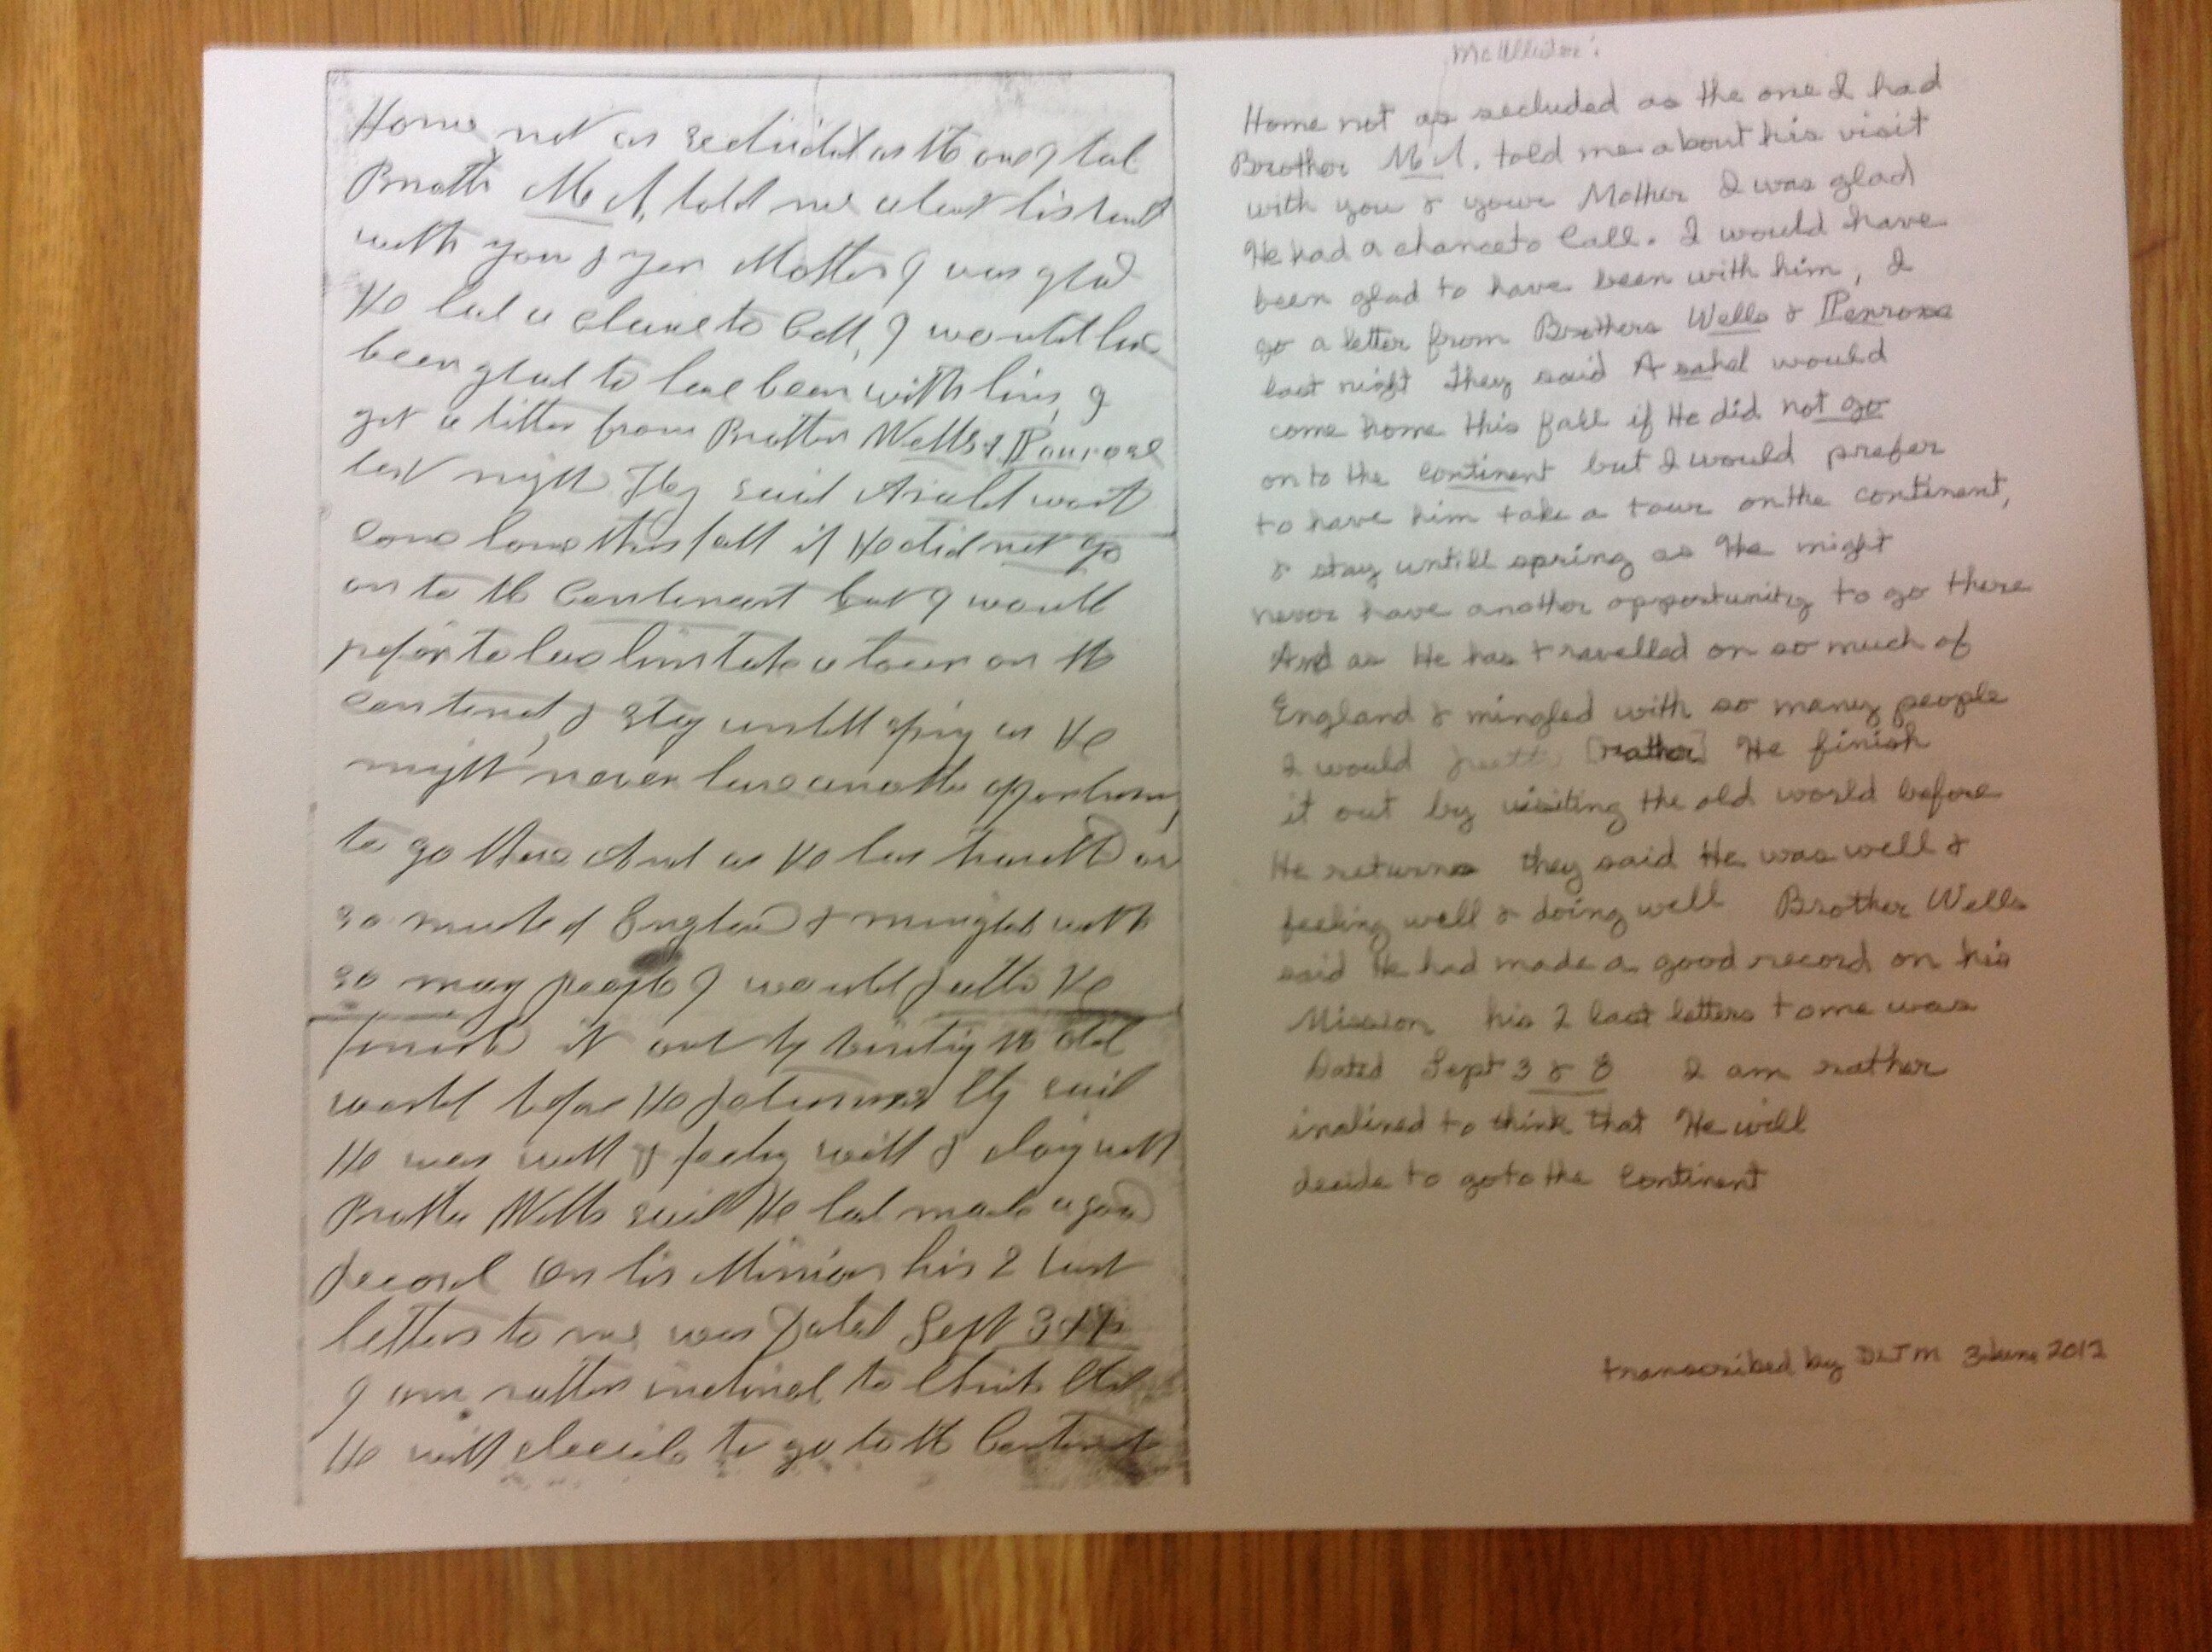 Home not as secluded as the one I had
Brother Mc A, told me about his visit
with you & your Mother I was glad
He had a chance to Call, I would have
been glad to have been with him, I
got a letter from Brother Wells & Penrose
last night They said Asahel would
come home this fall if He did not go
on to the Continent but I would
prefer to have him take a tour on the
continent, & stay untill spring as He
might never have another opportunity
to go there And as He has travelled on
so much of England & mingled with
so many people I would He
finish it out by visiting the old
world before He returns they said
He was well & feeling well & doing well
Brother Wells said He had made a good
record on his Mission his 2 last
letters to me was Dated Sept 3 &
I am rather inclined to think that
He will decide to go to the Continent
McAllister:
Home not as secluded as the one I had
Brother Mc A. told me about his visit
with you & youre Mother I was glad
He had a chance to Call. I would have
been glad to have been with him, I
go a letter from Brothers Wells & Penrose
last night they said Asahel would
come home this fall if He did not go
on to the continent but I would prefer
to have him take a tour on the continent,
& stay untill spring as He might
never have another opportunity to go there
And as He has travelled on so much of
England & mingled with so many people
I would [rather] He finish
it out by visiting the old world before
He returns they said He was well &
feeling well & doing well Brother Wells
said He had made a good record on his
Mission his 2 last letters to me was
Dated Sept 3 & 8 I am rather
inclined to think that He will
decide to go to the Continent
transcribed by DLTM 3 June 2012